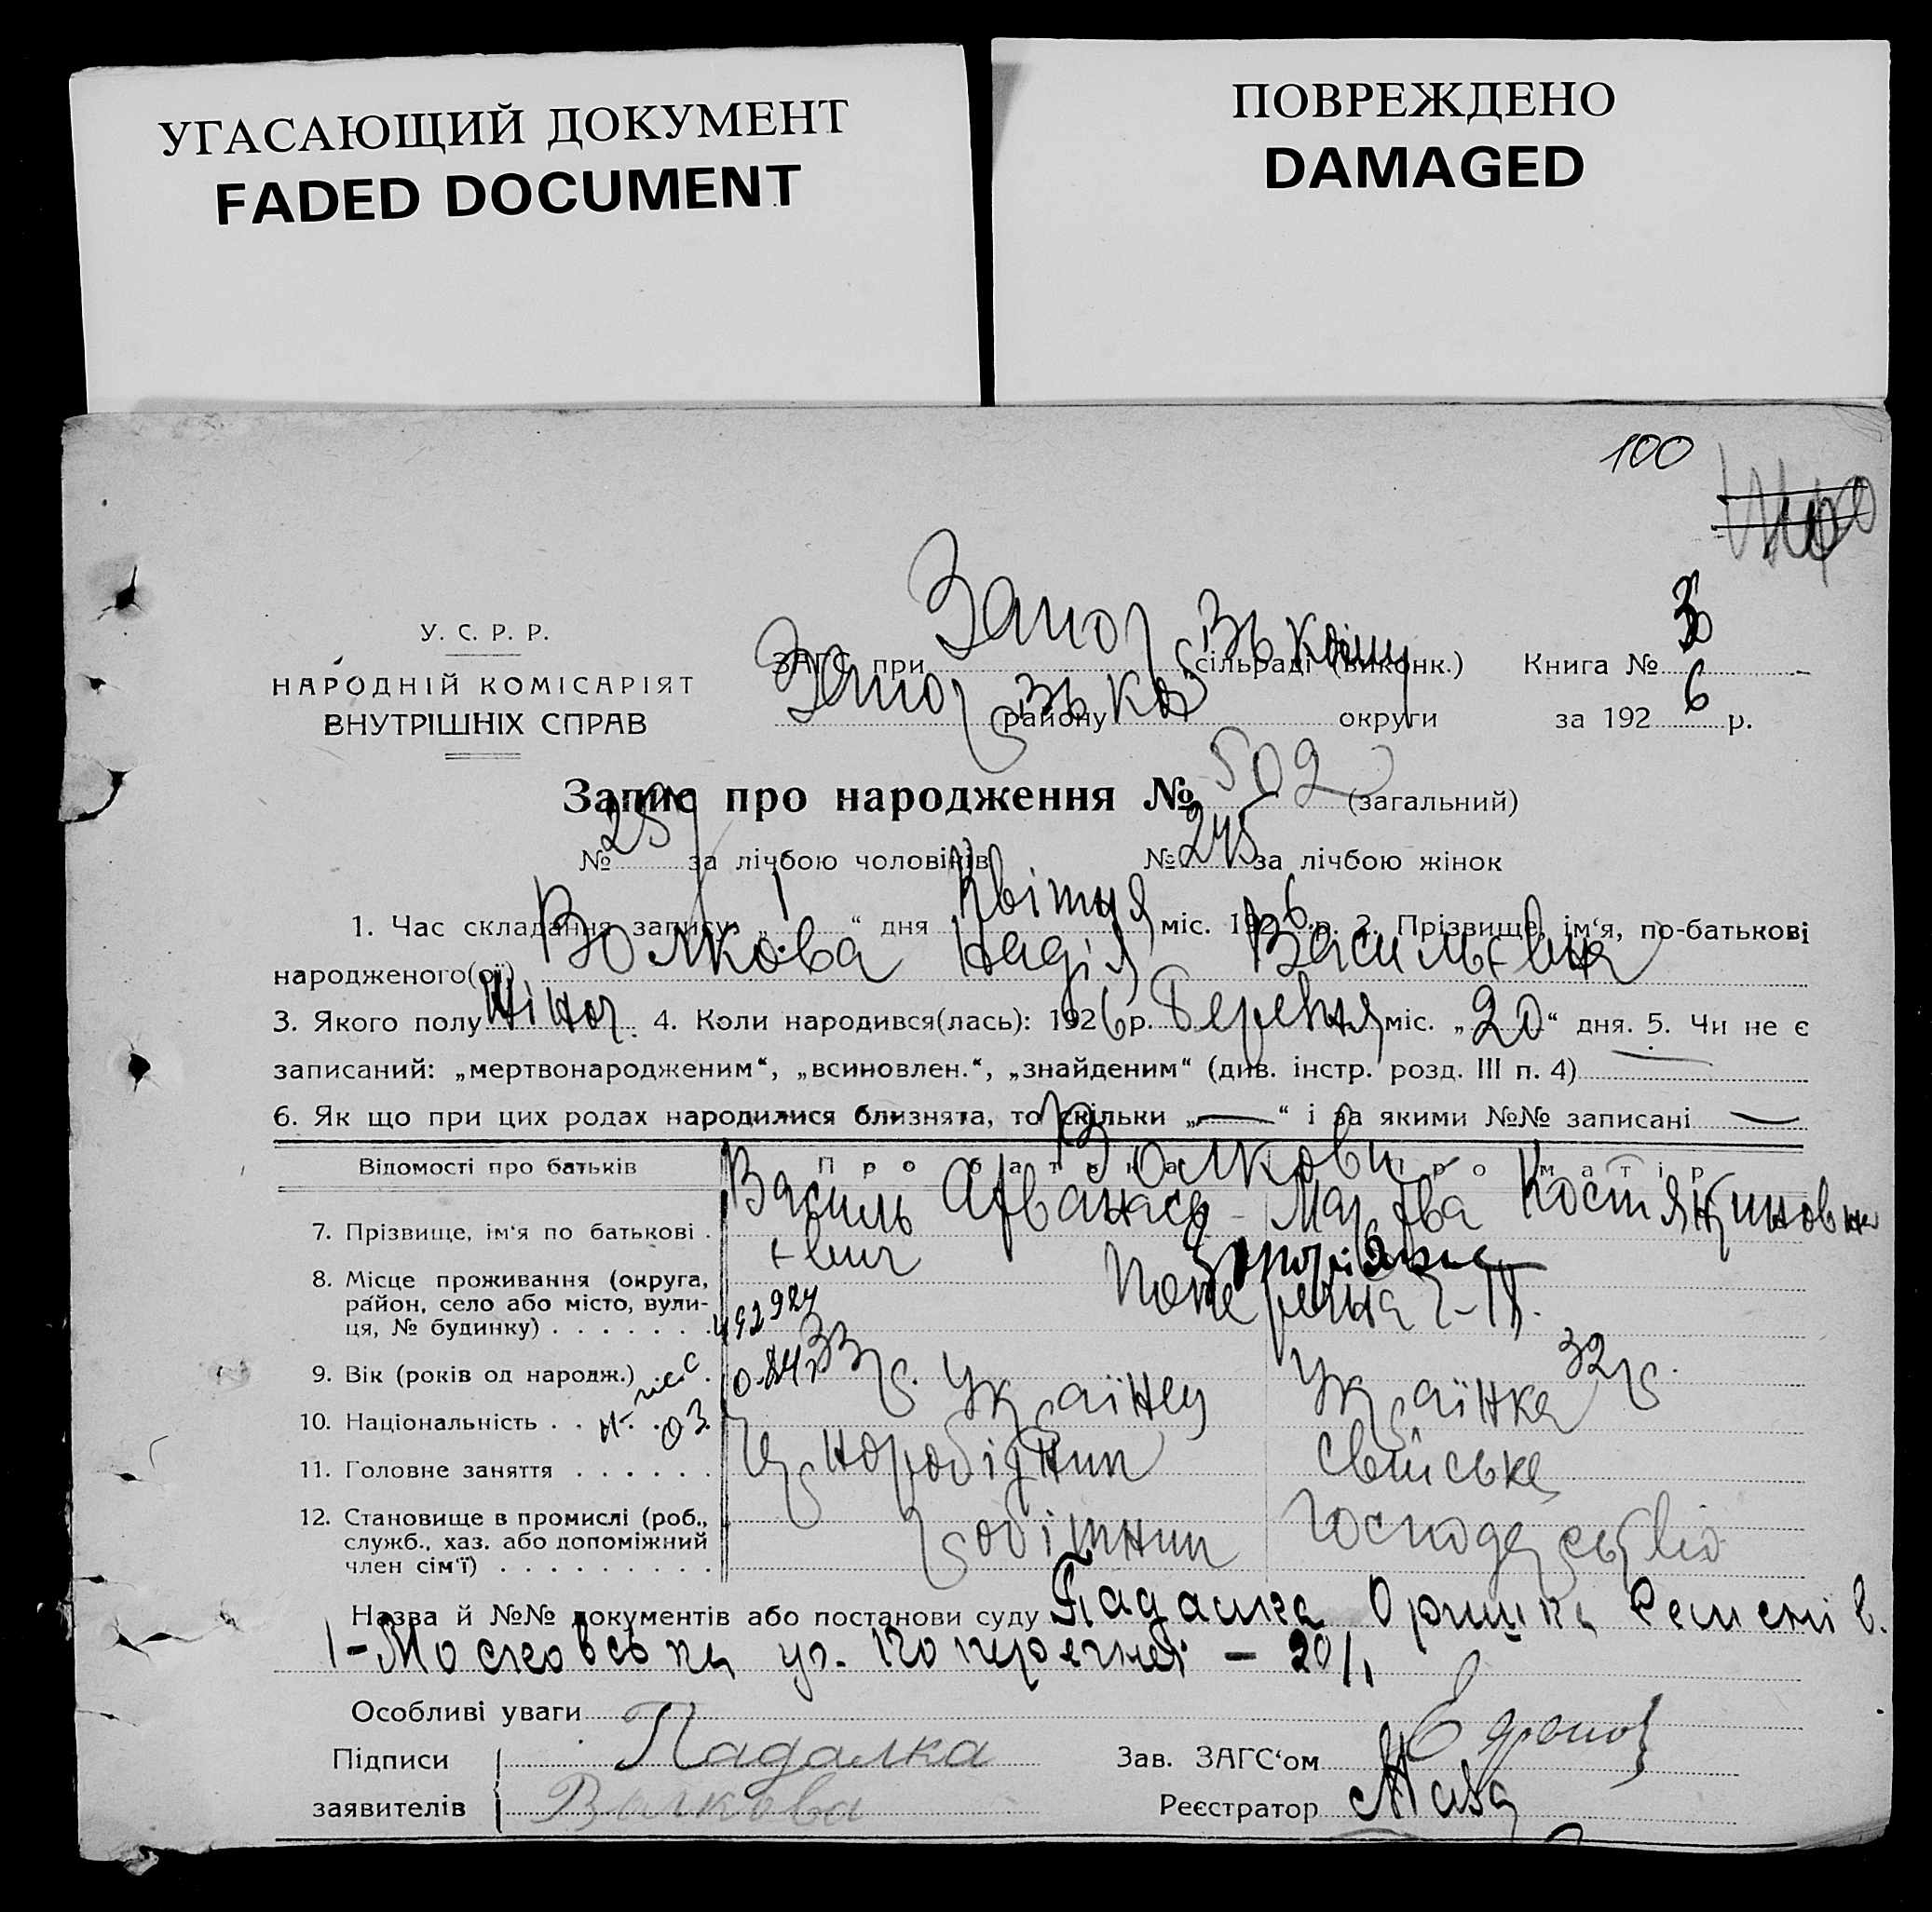 УГАСАЮЩИЙ ДОКУМЕНТ
FADED DOCUMENT
ПОВРЕЖДЕНО
DAMAGED
100
У. С. Р. Р.
НАРОДНІЙ КОМІСАРІЯТ
ВНУТРІШНІХ СПРАВ
ЗАГС при сільраді (виконк.)
району округи
Книга №
за 1926 р.
Запис про народження № 502 (загальний)
№ 257 за лічбою чоловіків № 245 за лічбою жінок
1. Час складання запису: „1“ дня Квітня міс. 1926 р. 2. Прізвище, ім‘я, по-батькові
народженого(ої) Волкова Надія Васильєвна
3. Якого полу Жіноч. 4. Коли народився(лась): 1926 р. Березня міс. „20“ дня. 5. Чи не є
записаний: „мертвонародженим“, „всиновлен.“, „знайденим“ (див. інстр. розд. III п. 4) —
6. Як що при цих родах народилися близнята, то скільки „—“ і за якими №№ записані —
Відомості про батьків Про батька Про матір
Волкови
7. Прізвище, ім‘я по батькові . Василь Афванась Марфва Костянтиновна
євич
8. Місце проживання (округа,
район, село або місто, вули-
ця, № будинку) . . . . . . .
Поперечна
9. Вік (років од народж.) 33 р. 32 р.
10. Національність . . Українец Українка
11. Головне заняття . . . . . . Чорноробітник свійське
12. Становище в промислі (роб.,
служб., хаз. або допоміжний
член сім‘ї) . . . . . . . . .
робітник господарство
Назва й №№ документів або постанови суду Падалка Оришка Семенів.
1-Московська ул. Поперечна – 20/1
Особливі уваги
Підписи
заявителів
Падалка
Волкова
Зав. ЗАГС‘ом
Реєстратор